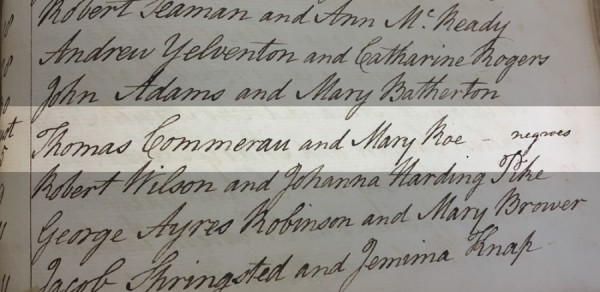 8 Robert Seaman and Ann McReady
8 Andrew Yelventon and Catharine Rogers
John Adams and Mary Batherton
Thomas Commerau and Mary Roe - negroes
Robert Wilson and Johanna Harding Pike
George Ayres Robinson and Mary Brower
Jacob Springsted and Jemima Knap